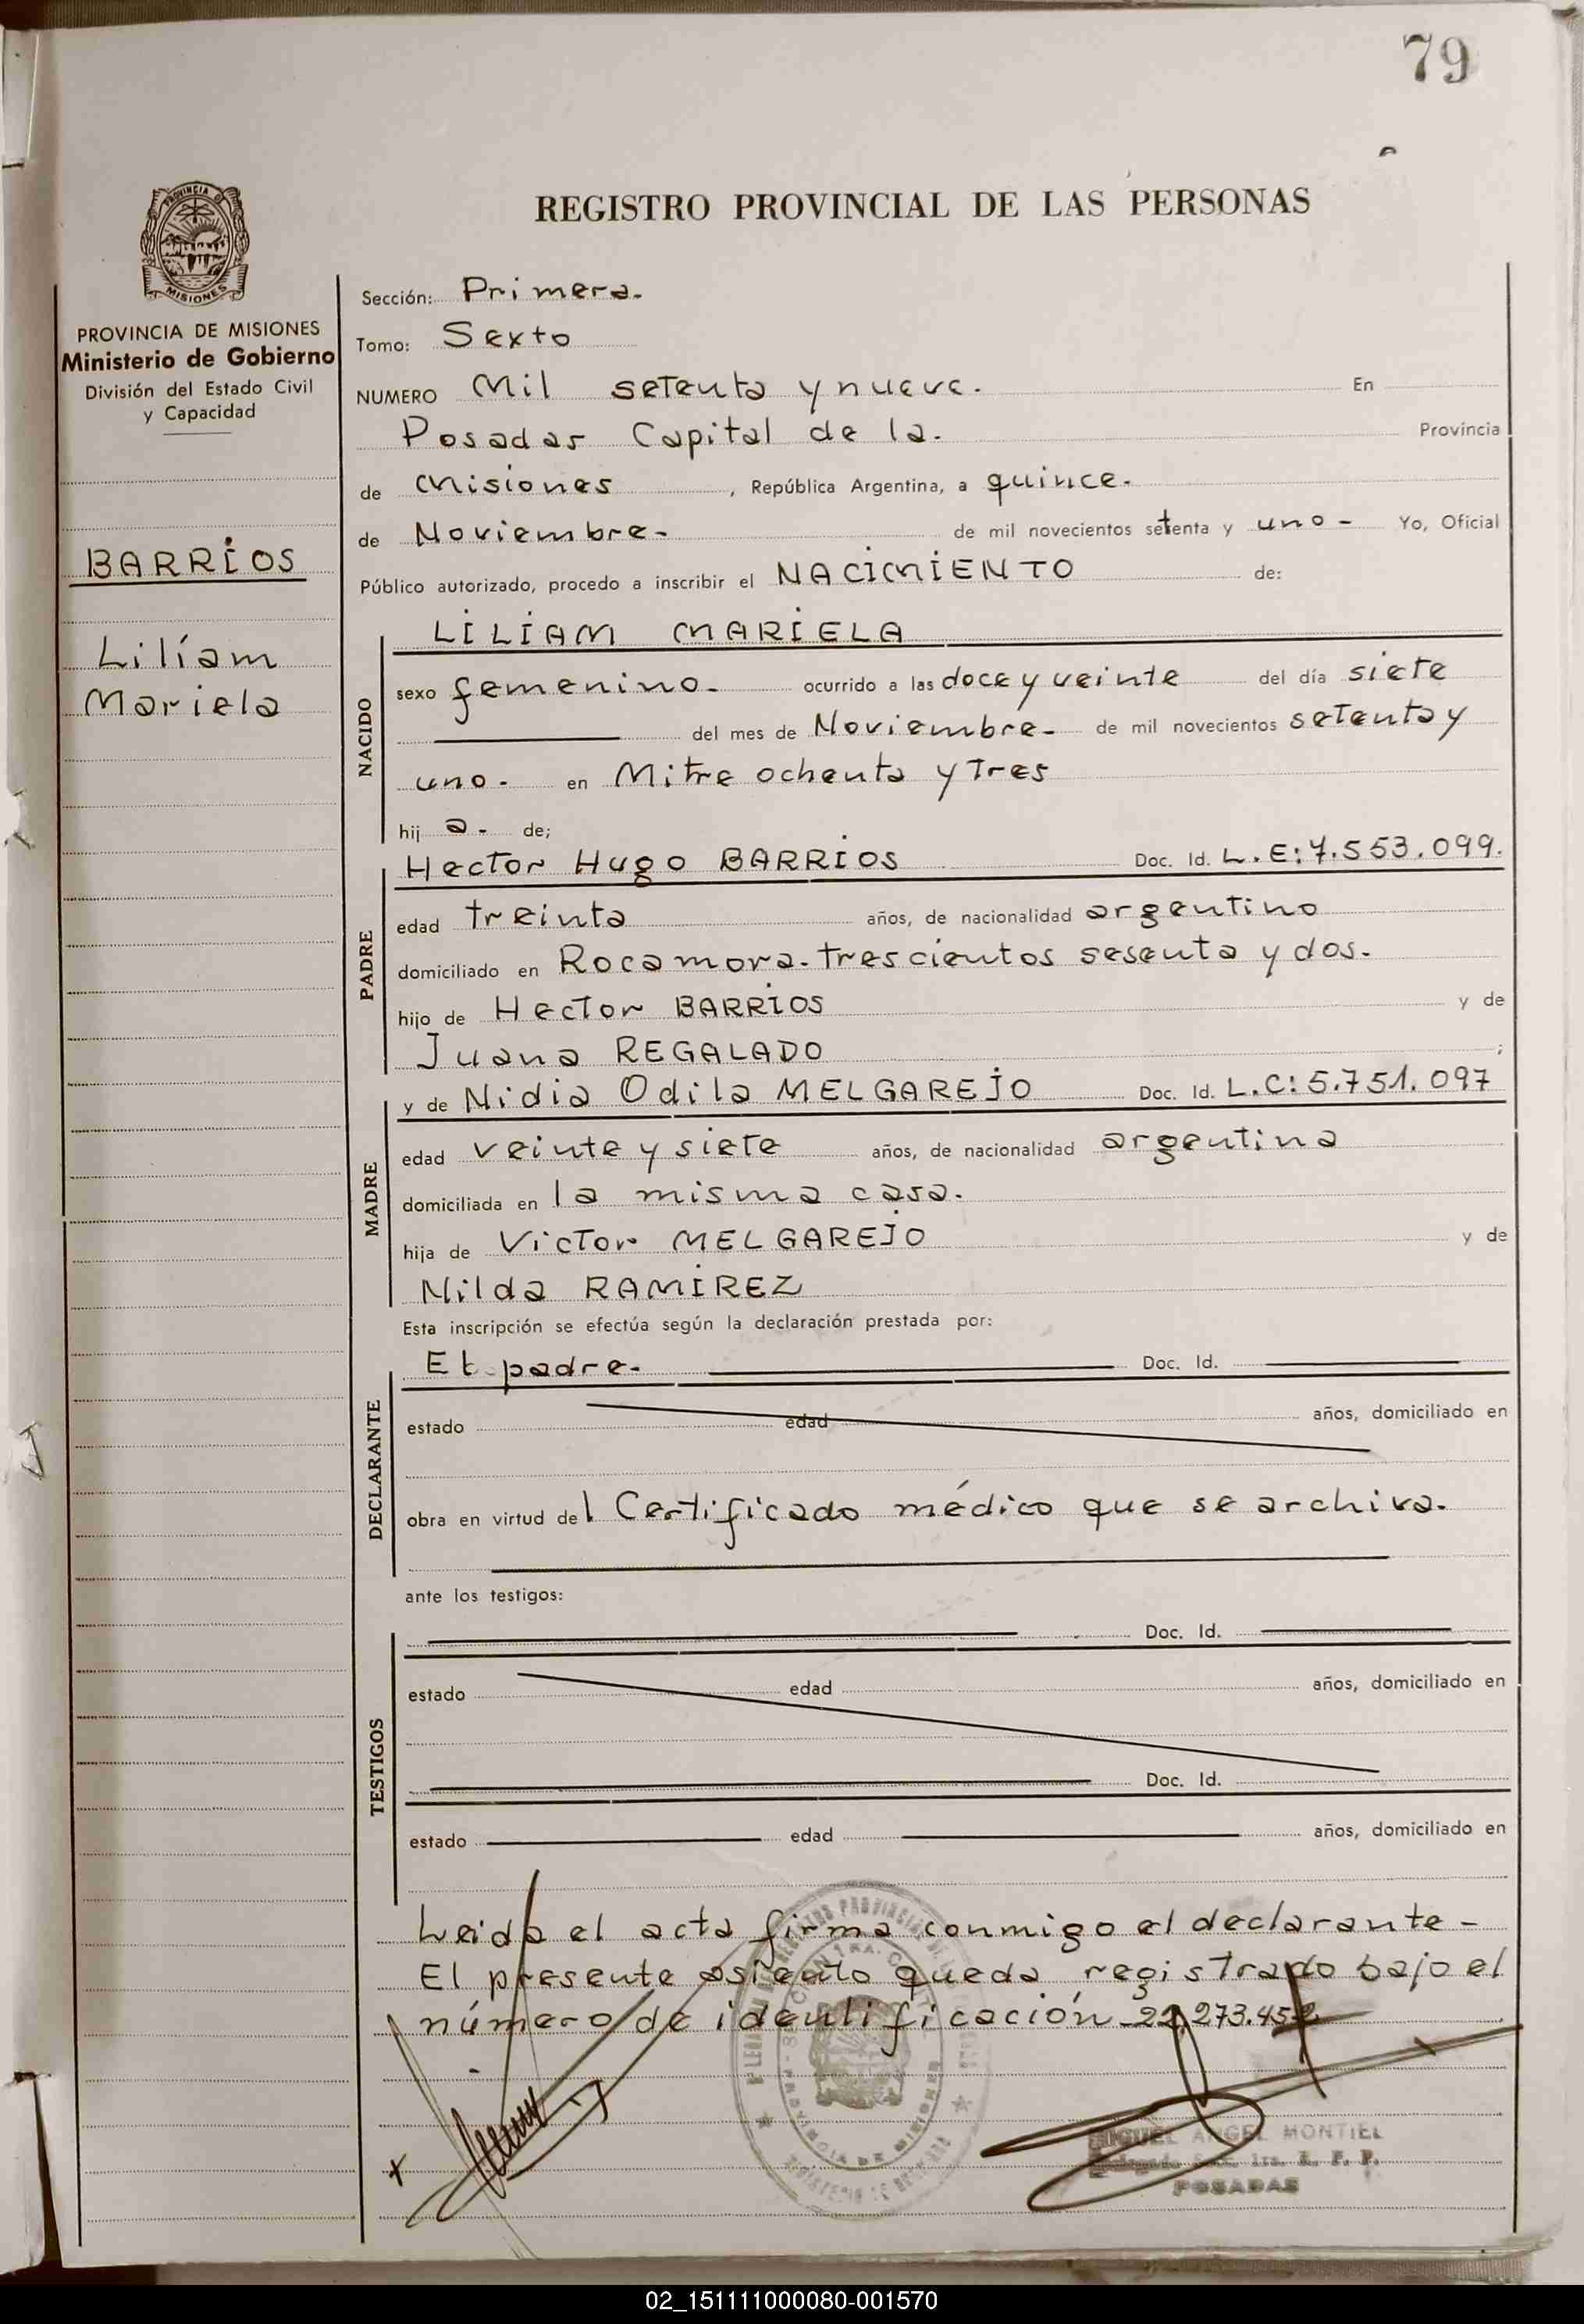 79
PROVINCIA DE
MISIONES
REGISTRO PROVINCIAL DE LAS PERSONAS
PROVINCIA DE MISIONES
Ministerio de Gobierno
División del Estado Civil
y Capacidad
BARRIOS
Liliam
Mariela
Sección: Primera.
Tomo: Sexto
NUMERO Mil setenta y nueve. En
Posadas Capital de la. Provincia
de Misiones, República Argentina, a quince.
de Noviembre. de mil novecientos setenta y uno - Yo, Oficial
Público autorizado, procedo a inscribir el NACIMIENTO de:
NACIDO
LILIAM MARIELA
sexo femenino. ocurrido a las doce y veinte del día siete
del mes de Noviembre. de mil novecientos setenta y
uno. en Mitre ochenta y tres
hij a. de;
PADRE
Hector Hugo BARRIOS Doc. Id. L.E: 7.553.099.
edad treinta años, de nacionalidad argentino
domiciliado en Rocamora. trescientos sesenta y dos.
hijo de Hector BARRIOS y de
Juana REGALADO ;
MADRE
y de Nidia Odila MELGAREJO Doc. Id. L.C: 5.751.097
edad veinte y siete años, de nacionalidad argentina
domiciliada en la misma casa.
hija de Victor MELGAREJO y de
Nilda RAMIREZ
Esta inscripción se efectúa según la declaración prestada por:
DECLARANTE
El padre. Doc. Id.
estado edad años, domiciliado en
obra en virtud del Certificado médico que se archiva.
ante los testigos:
TESTIGOS
Doc. Id.
estado edad años, domiciliado en
Doc. Id.
estado edad años, domiciliado en
Leida el acta firma conmigo el declarante -
El presente asiento queda registrado bajo el
número de identificación 22.273.452
PROVINCIA DE MISIONES
MIGUEL ANGEL MONTIEL
1ra. R. P. P.
POSADAS
02_151111000080-001570